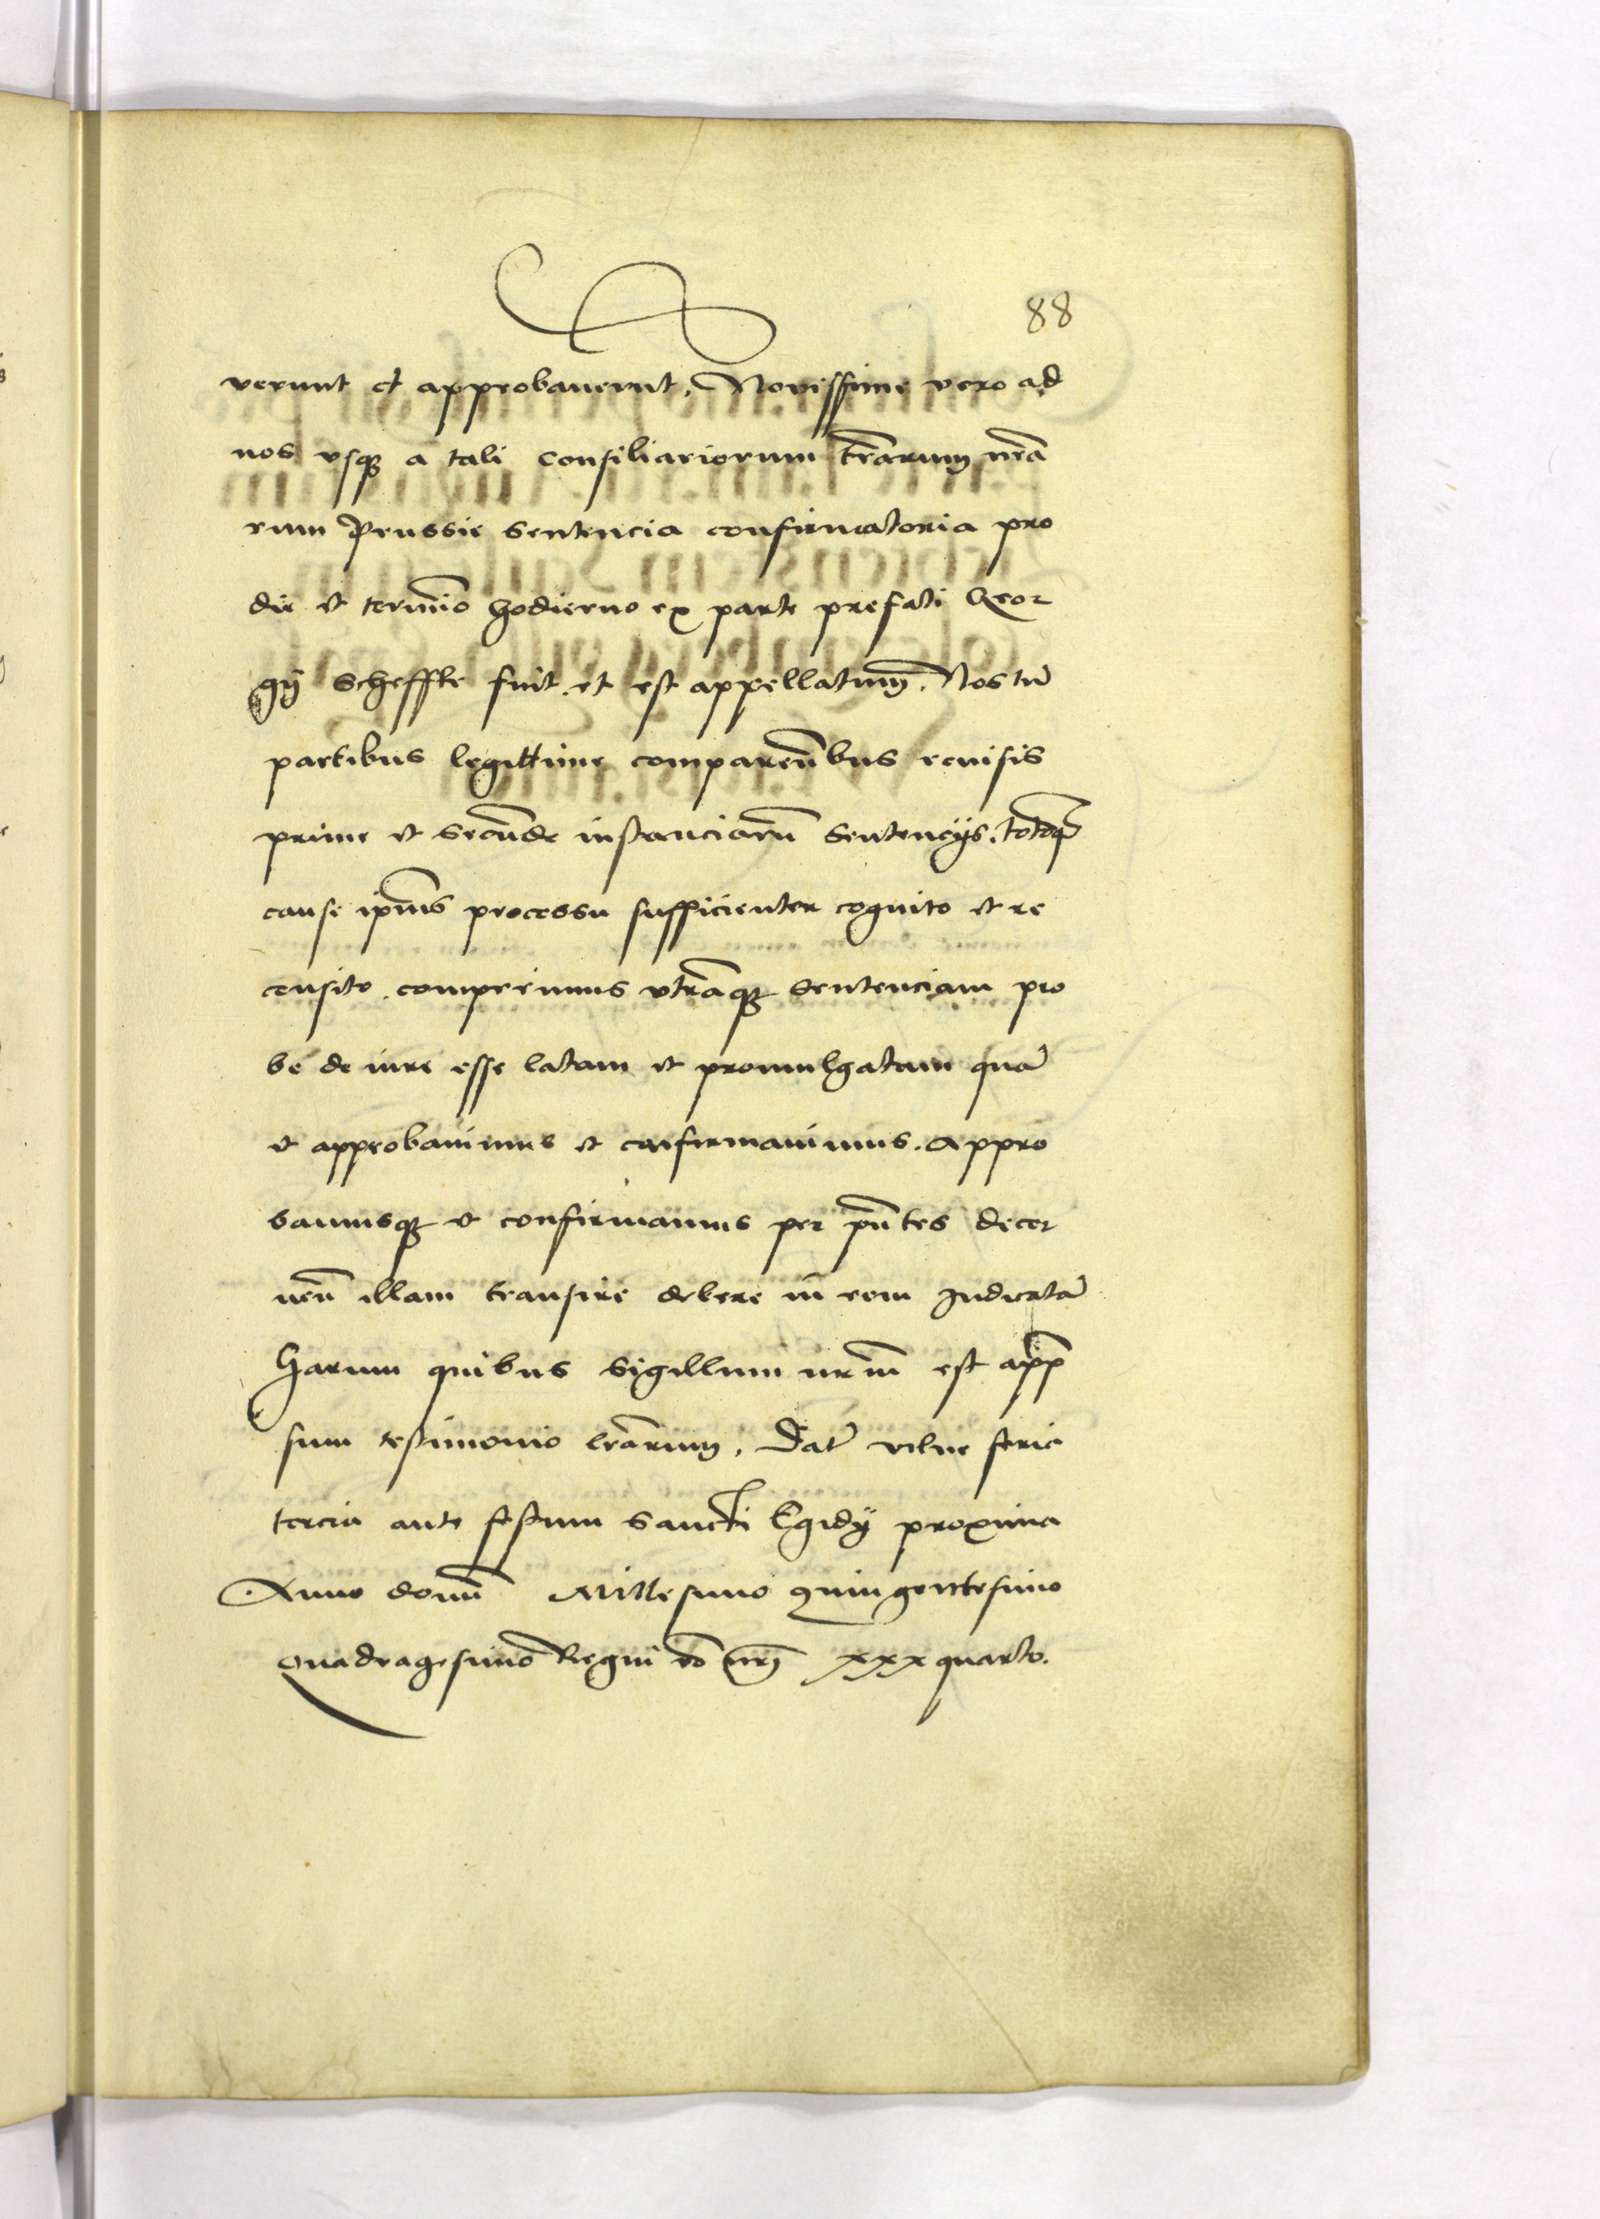 88
verunt et approbaverunt. Novissime vero ad
nos vsq a tali consiliariorum terrarum nr̃a
rum Prussie sentencia confirmatoria pro
die et termĩo hodierno ex parte prefati Geor
gij Scheffle fuit et est appellatum. Nos tñ
partibus legittime compareñbus revisis
prime et secũde instanciarũ sentencijs. totoq
cause ip̃ius processu sufficienter cognito et re
censito. comperimus vtrãq sentenciam pro
be de iure esse latam et promulgatam quã
et approbavimus et confirmavimus. Appro
bamusq et confirmamus per p̃ntes decer
neñ illam transire debere in rem Iudicatã
Harum quibus Sigillum nr̃um est app̃
sum testimonio lr̃arum. Dat̃ vilne feria
tercia ante festum Sancti Egidij proxima
Anno domĩ Millesimo quingentesimo
Quadragesimo Regni vo nr̃i xxx quarto.